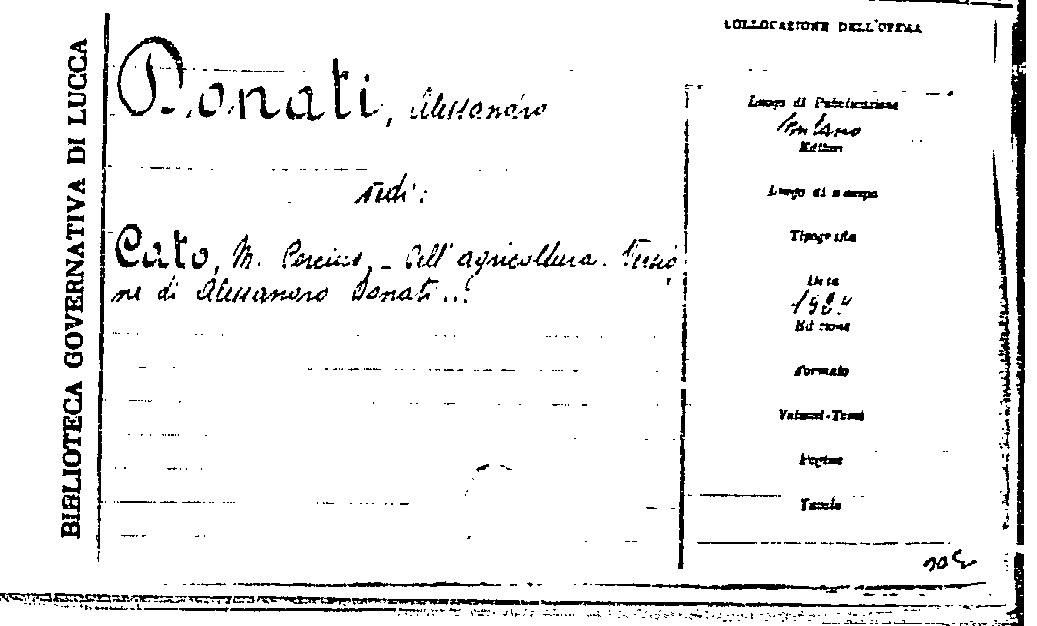 BIBLIOTECA GOVERNATIVA DI LUCCA
Donati, Alessandro
vedi:
Cato, M. Porcius, - Dell'agricoltura. Versio
ne di Alessandro Donati...
COLLOCAZIONE DELL'OPERA
Luogo di Pubblicazione
Milano
Editore
Luogo di stampa
Tipografia
Data
Edizione
Formato
Volumi-Tomi
Pagine
Tavole